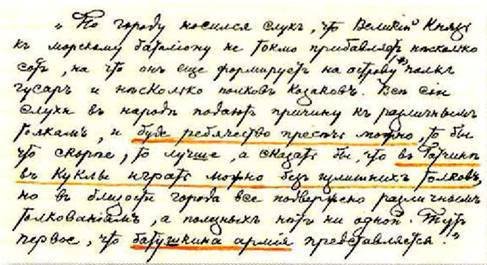 „По городу носился слухъ, что Великій Князь
къ морскому баталіону не токмо прибавляетъ нѣсколько
сотъ, на что онъ еще формируетъ на острову полкъ
гусаръ и нѣсколько полковъ Козаковъ. Всѣ сіи
слухи въ народѣ подаютъ причину къ различнымъ
толкамъ, и буде ребячество пресечь можно, то бы
что скорѣе, то лучше, а сказать бы, что въ Гатчинѣ
въ куклы играть можно безъ излишнихъ толковъ,
но въ близости города все подвержено различнымъ
толкованіямъ, а полезныхъ нѣтъ ни одной. Тутъ
первое, что батушкина армія представляется."